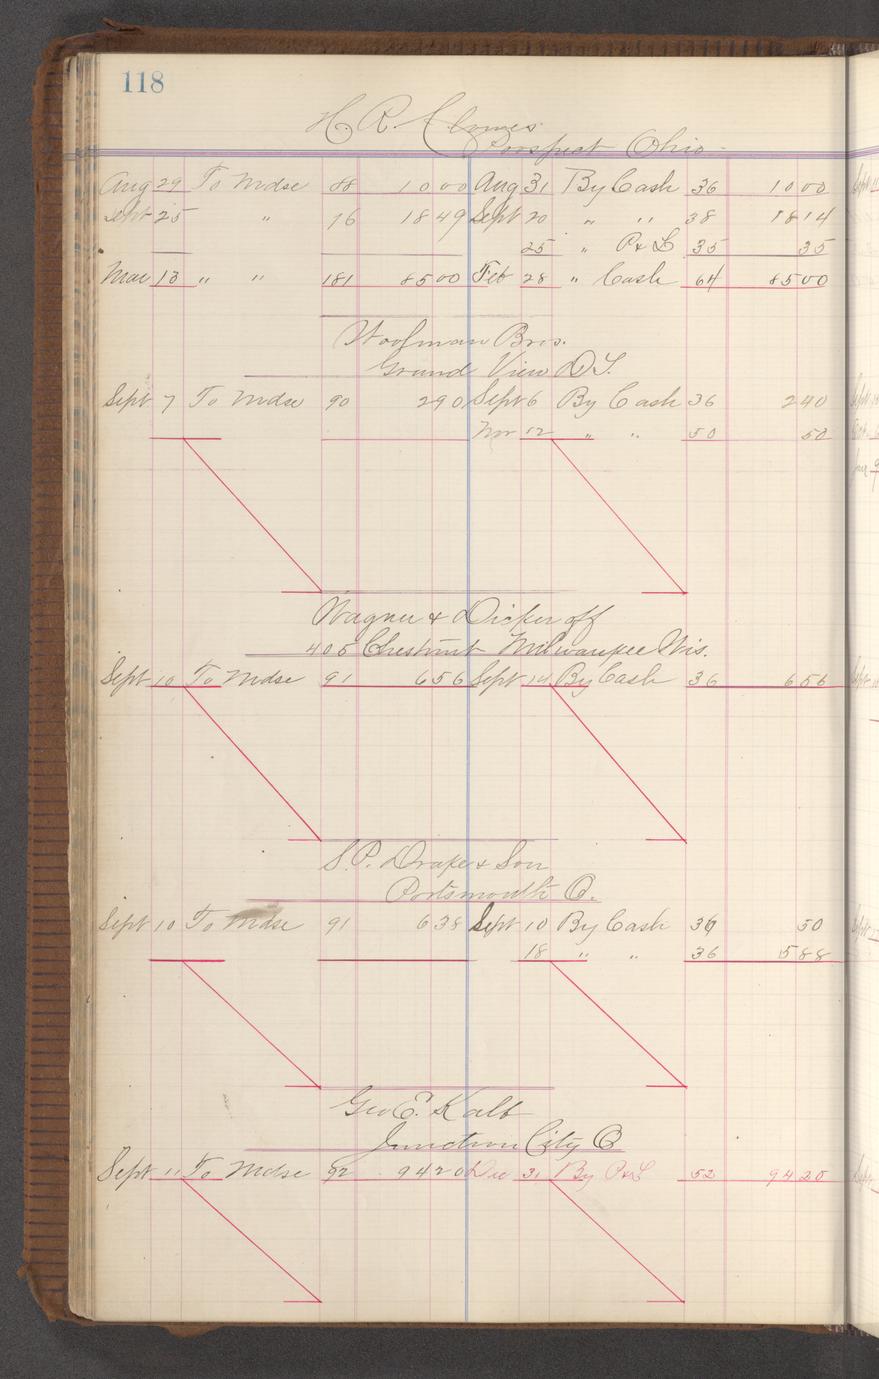 118
H. R. Clowes
Prospect Ohio
Aug 29 To Mdse 88 10 00 Aug 31 By Cash 36 10 00
Sept 25 " 76 18 49 Sept 20 " " 38 18 14
25 " P & L 35 35
Mar 13 " " 181 85 00 Feb 28 " Cash 64 85 00
Woolman Bros.
Grand View D.T.
Sept 7 To Mdse 90 2 90 Sept 6 By Cash 36 2 40
Nov 12 " " 50 50
Wagner & Dickeroff
405 Chestnut Milwaukee Wis.
Sept 10 To Mdse 91 6 56 Sept 14 By Cash 36 6 56
S. P. Drake & Son
Portsmouth O.
Sept 10 To Mdse 91 6 38 Sept 10 By Cash 36 50
18 " " 36 5 88
Geo E. Kalb
Junction City O
Sept 11 To Mdse 92 94 20 Dec 31 By P & L 52 94 20